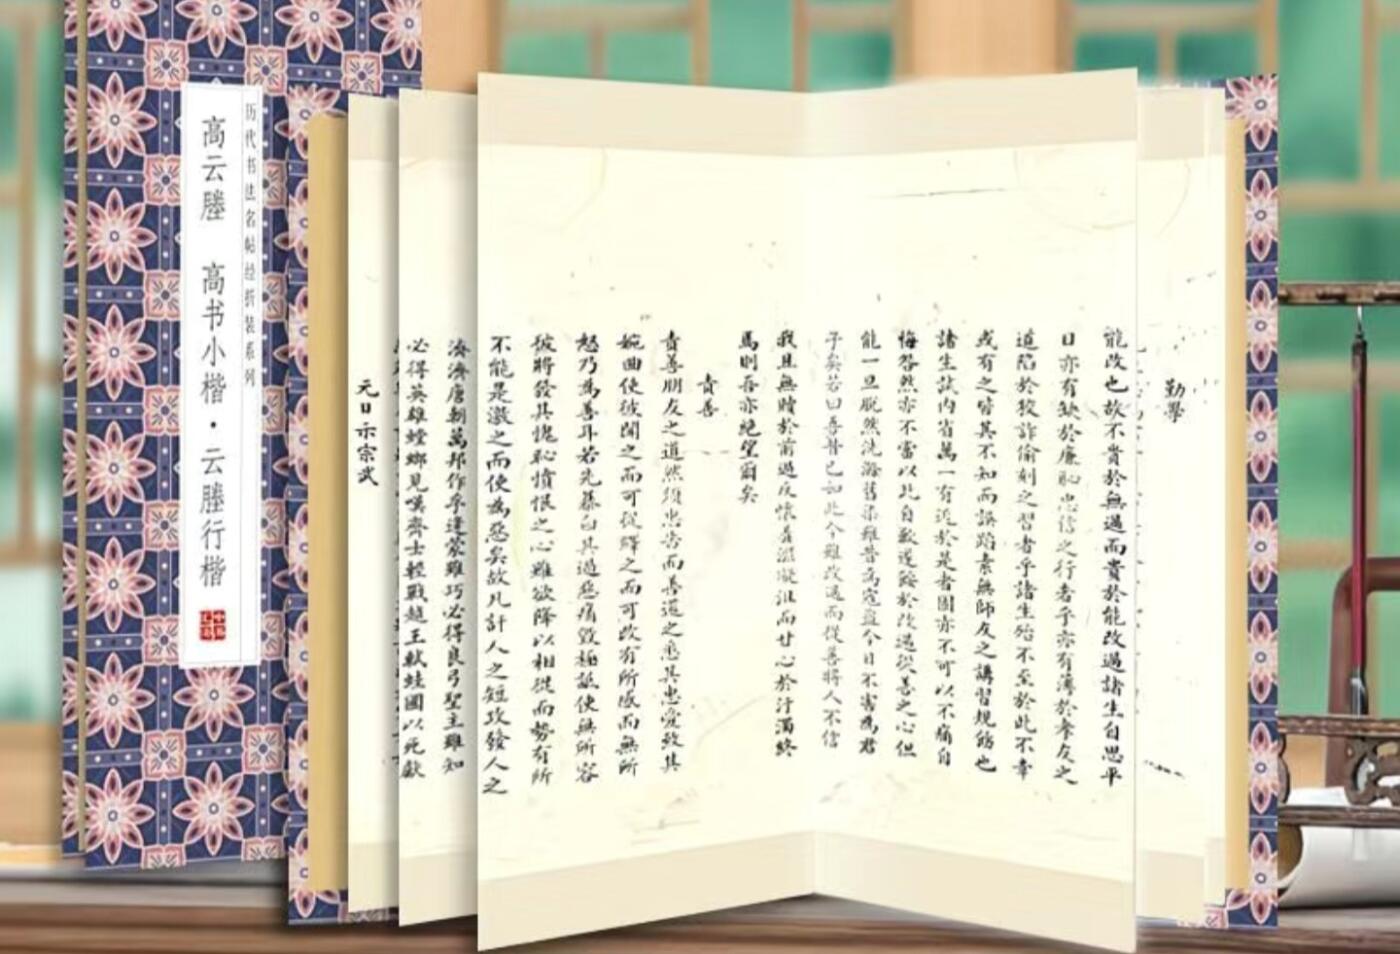 历代书法名帖经折装系列
高云塍 高书小楷·云塍行楷
勤學
能改也故不貴於無過而貴於能改過諸生自思平
日亦有缺於廉恥忠信之行者乎亦有薄於孝友之
道陷於狡詐偷刻之習者乎諸生殆不至於此不幸
或有之皆其不知而誤蹈素無師友之講習規飭也
諸生試內省萬一有近於是者固亦不可以不痛自
悔咎然亦不當以此自歉遂餒於改過從善之心但
能一旦脫然洗滌舊染雖昔為寇盜今日不害為君
子矣若曰吾昔已如此今雖改過而從善將人不信
我且無贖於前過反懷羞澀凝沮而甘心於汙濁終
焉則吾亦絕望爾矣
責善
責善朋友之道然須忠告而善道之悉其忠愛致其
婉曲使彼聞之而可從繹之而可改有所感而無所
怒乃為善耳若先暴白其過惡痛毀極詆使無所容
彼將發其愧恥憤恨之心雖欲降以相從而勢有所
不能是激之而使為惡矣故凡訐人之短攻發人之
濟濟唐朝萬邦作孚逢蒙雖巧必得良弓聖主雖知
必得英雄螳螂見嘆齊士輕戰越王軾蛙國以死獻
元日示宗武